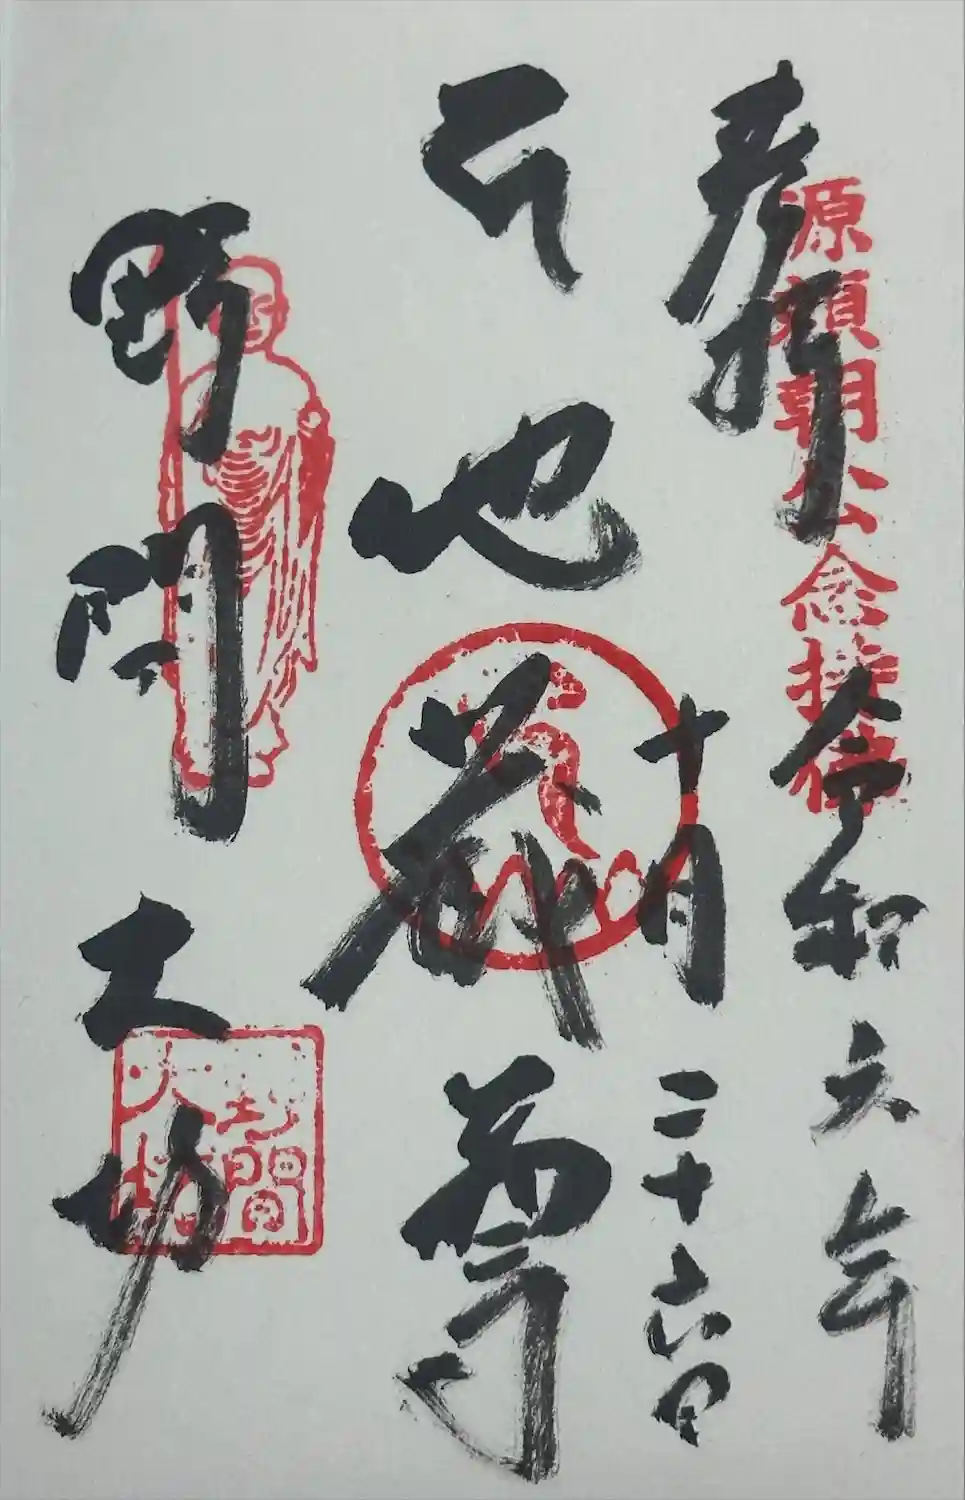 奉拝
源頼朝公念持佛
令和六年
十月二十六日
地蔵尊
野間大坊
野間
大坊